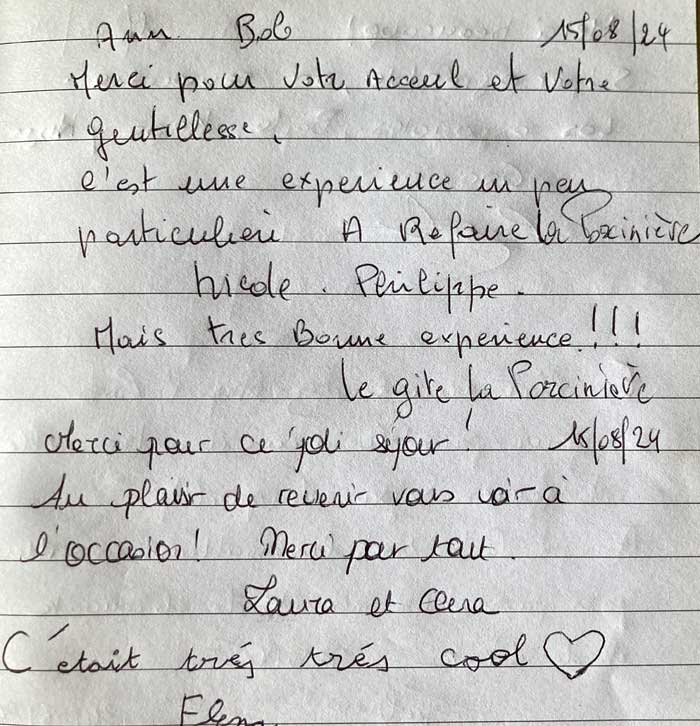 Ann Bob 15/08/24
Merci pour Votr Acceuil et Votre
gentillesse,
c'est une experience un peu
particulieri A Refaire la Porcinière
Nicole. Philippe.
Mais tres Bonne experience!!!
le gite la Porcinière
Merci pour ce joli séjour! 15/08/24
Au plaisir de revenir vous voir à
l'occasion! Merci pour tout.
Laura et
C'était trés trés cool ♡
Elena